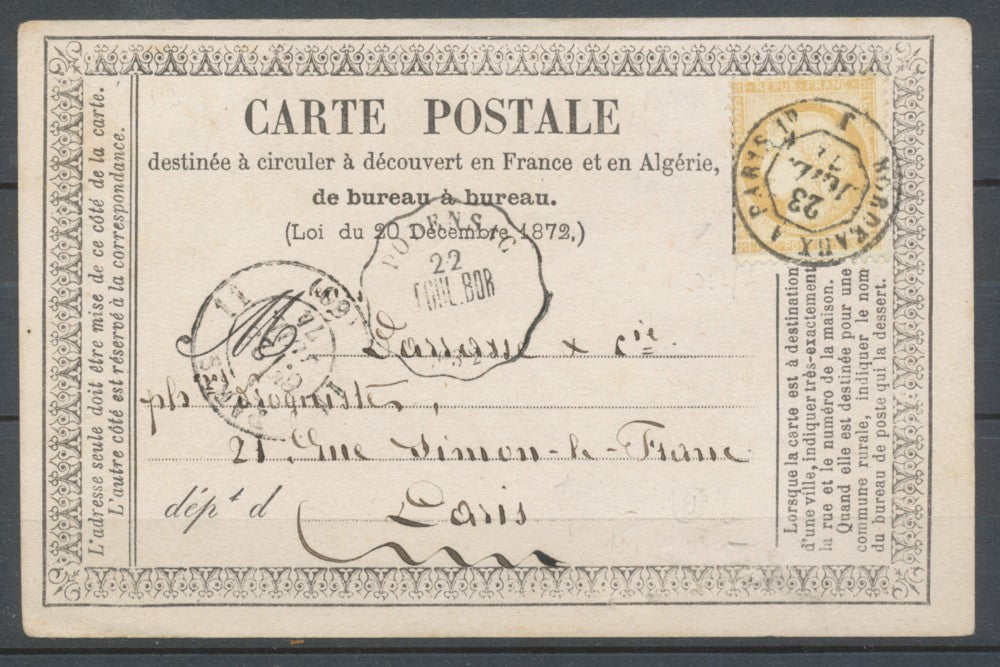 CARTE POSTALE
destinée à circuler à découvert en France et en Algérie,
de bureau à bureau.
(Loi du 20 Décembre 1872,)
L'adresse seule doit être mise de ce côté de la carte.
L'autre côté est réservé à la correspondance.
REPUB. FRANC.
BORDEAUX A PARIS 1º
23
JUIL.
PODENSAC
22
TOUL.BOR
PARIS
M
& Cie
21, Rue Simon-le-Franc
dépt d
Paris
Lorsque la carte est à destination
d'une ville, indiquer très-exactement
la rue et le numéro de la maison.
Quand elle est destinée pour une
commune rurale, indiquer le nom
du bureau de poste qui la dessert.